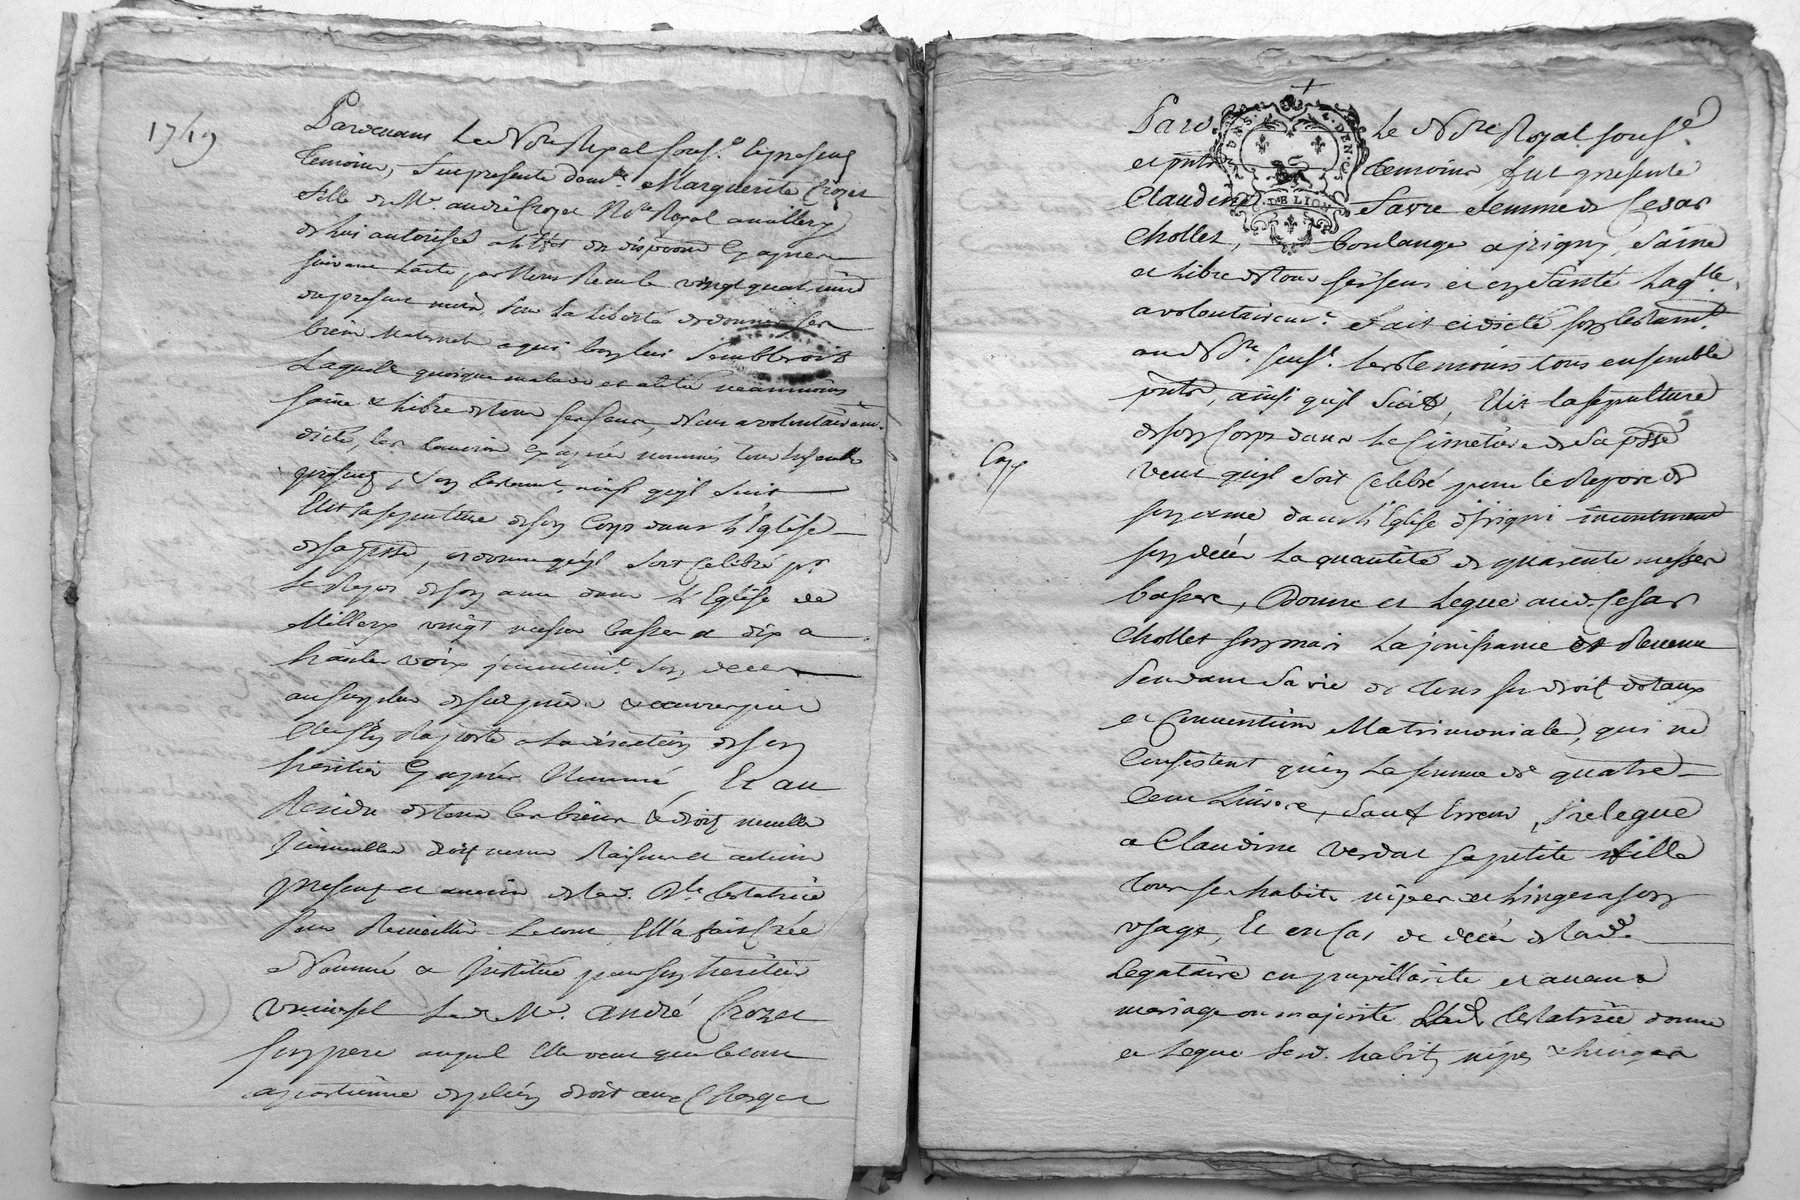 1749
Pardevant Le Nore Royal sousé. & presens
Temoins, fut presente damlle. Marguerite Crozet
Fille de Mr. andré Crozet Nore Royal a millery
de lui autorisée
suivant L'acte par Nous Recu le vingt quatrieme
du present mois, sur La Liberté de donner ses
biens Maternels a qui bon lui Sembleroit
Laquelle quoique malade et alitée neammoins
saine & libre de tous ses sens, De son a volontairemt.
dicté, les temoins cy apres nommés tous Ensemble
presens, son testamt. ainsi qu'il suit
Elit la sepulture de son Corps dans L'Eglise
de sa psse, ordonne qu'il soit Celebré pr.
le Repos de son ame dans L'Eglise de
Millery vingt messes basses & dix a
haute voix
heritier cy apres Nommé, Et au
Residu de tous les biens & droits meubles
Immeubles droits noms Raisons et actions
presens et avenir de lad. Dlle testatrice
Elle a fait Créé
Nommé & Institué pour son heritier
universel Led. Mr. André Crozet
son pere auquel Elle veut que le tout
apartienne de plein droit aux Charges
Pard Le Nore Royal sousé.
et pnts temoins fut presente
Claudine Favre femme de Cesar
Chollet, boulanger a jrigny, saine
et libre de tous ses sens et en santé Laqlle.
a volontairemt. fait et dicté son testamt.
au d. Nre. sousé. les temoins tous ensemble
pnts, ainsi qu'il suit, Elit la sepulture
de son Corps dans Le Cimetiere de sa psse
veut qu'il soit Celebré pour le Repos de
son ame dans L'Eglise d'jrigni incontinent
son decès La quantité de quarente messes
basses, Donne et Legue aud. Cesar
Chollet son mari La jouissance et Revenu
Pendant sa vie de tous ses droits dotaux
et Convention Matrimoniale, qui ne
Consistent qu'en La somme de quatre
Cent Livres, sauf Erreur, Prelegue
a Claudine Verdat sa petite fille
tous ses habits nipes et linges a son
usage, Et en Cas de decès de lade
Legataire en pupillarité et avant
mariage ou majorité Lad. testatrice donne
et Legue Sesd. habits nipes & linges
DE LION